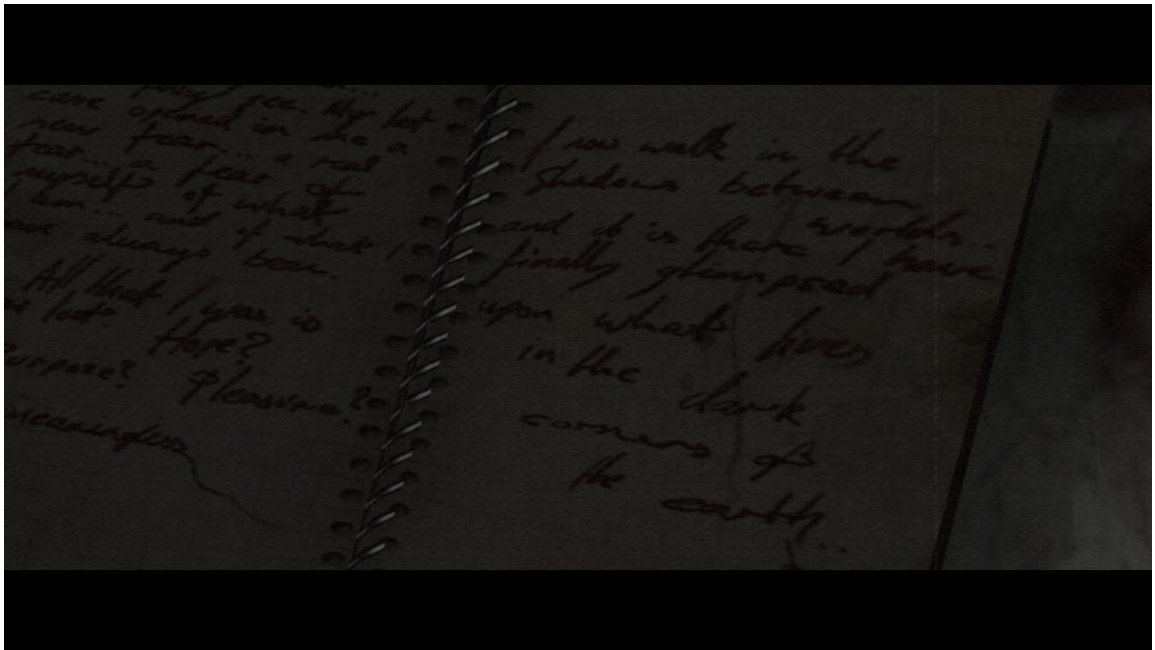 see. My last
case opened in me a
new fear... a real
fear... a fear of
myself of what
I am... and of what I
have always been.
All that I was is
lost. Hope?
Purpose? Pleasure?
meaningless
I now walk in the
shadows between
worlds...
and it is there I have
finally glimpsed
upon what lives
in the dark
corners of
the earth...